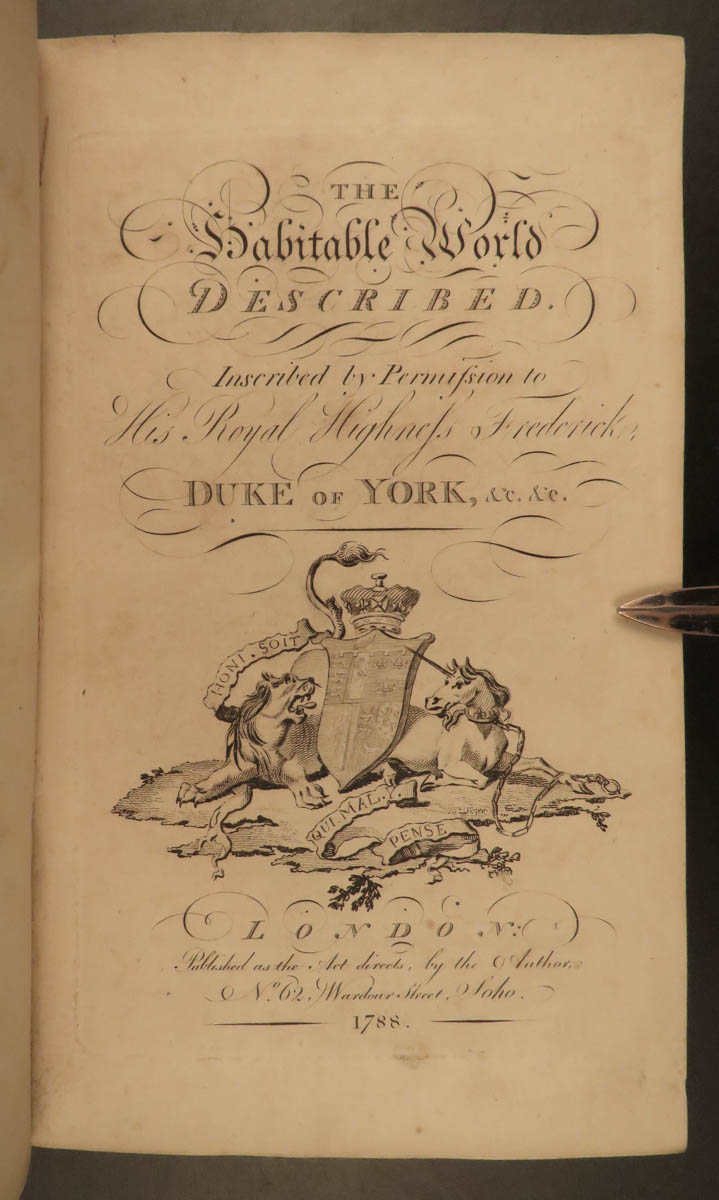 THE
Habitable World
DESCRIBED.
Inscribed by Permiſsion to
His Royal Highneſs Frederick,
DUKE OF YORK, &c. &c.
HONI. SOIT
QUI. MAL. Y.
PENSE
LONDON:
Published as the Act directs, by the Author,
No. 62, Wardour Street, Soho.
1788.